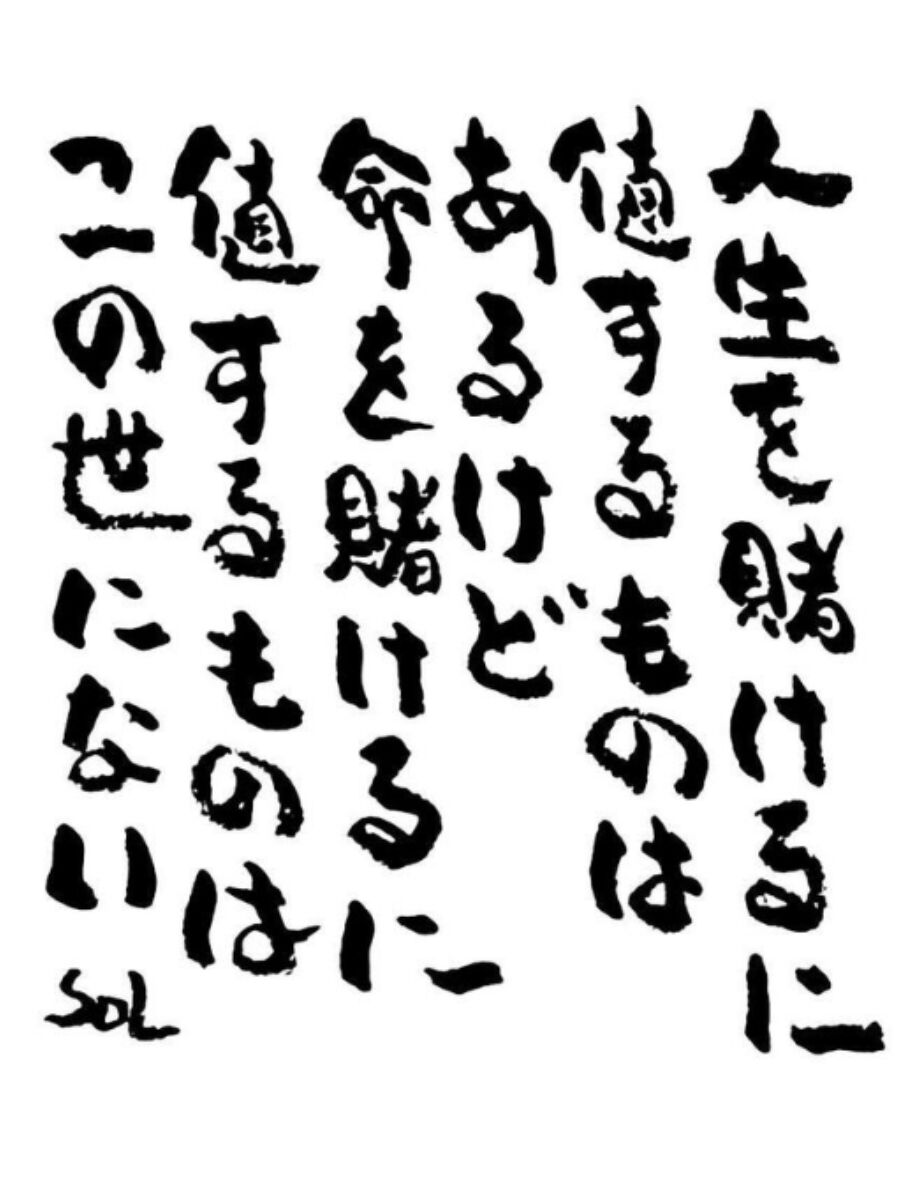 人生を賭けるに
値するものは
あるけど
命を賭けるに
値するものは
この世にない
SOL